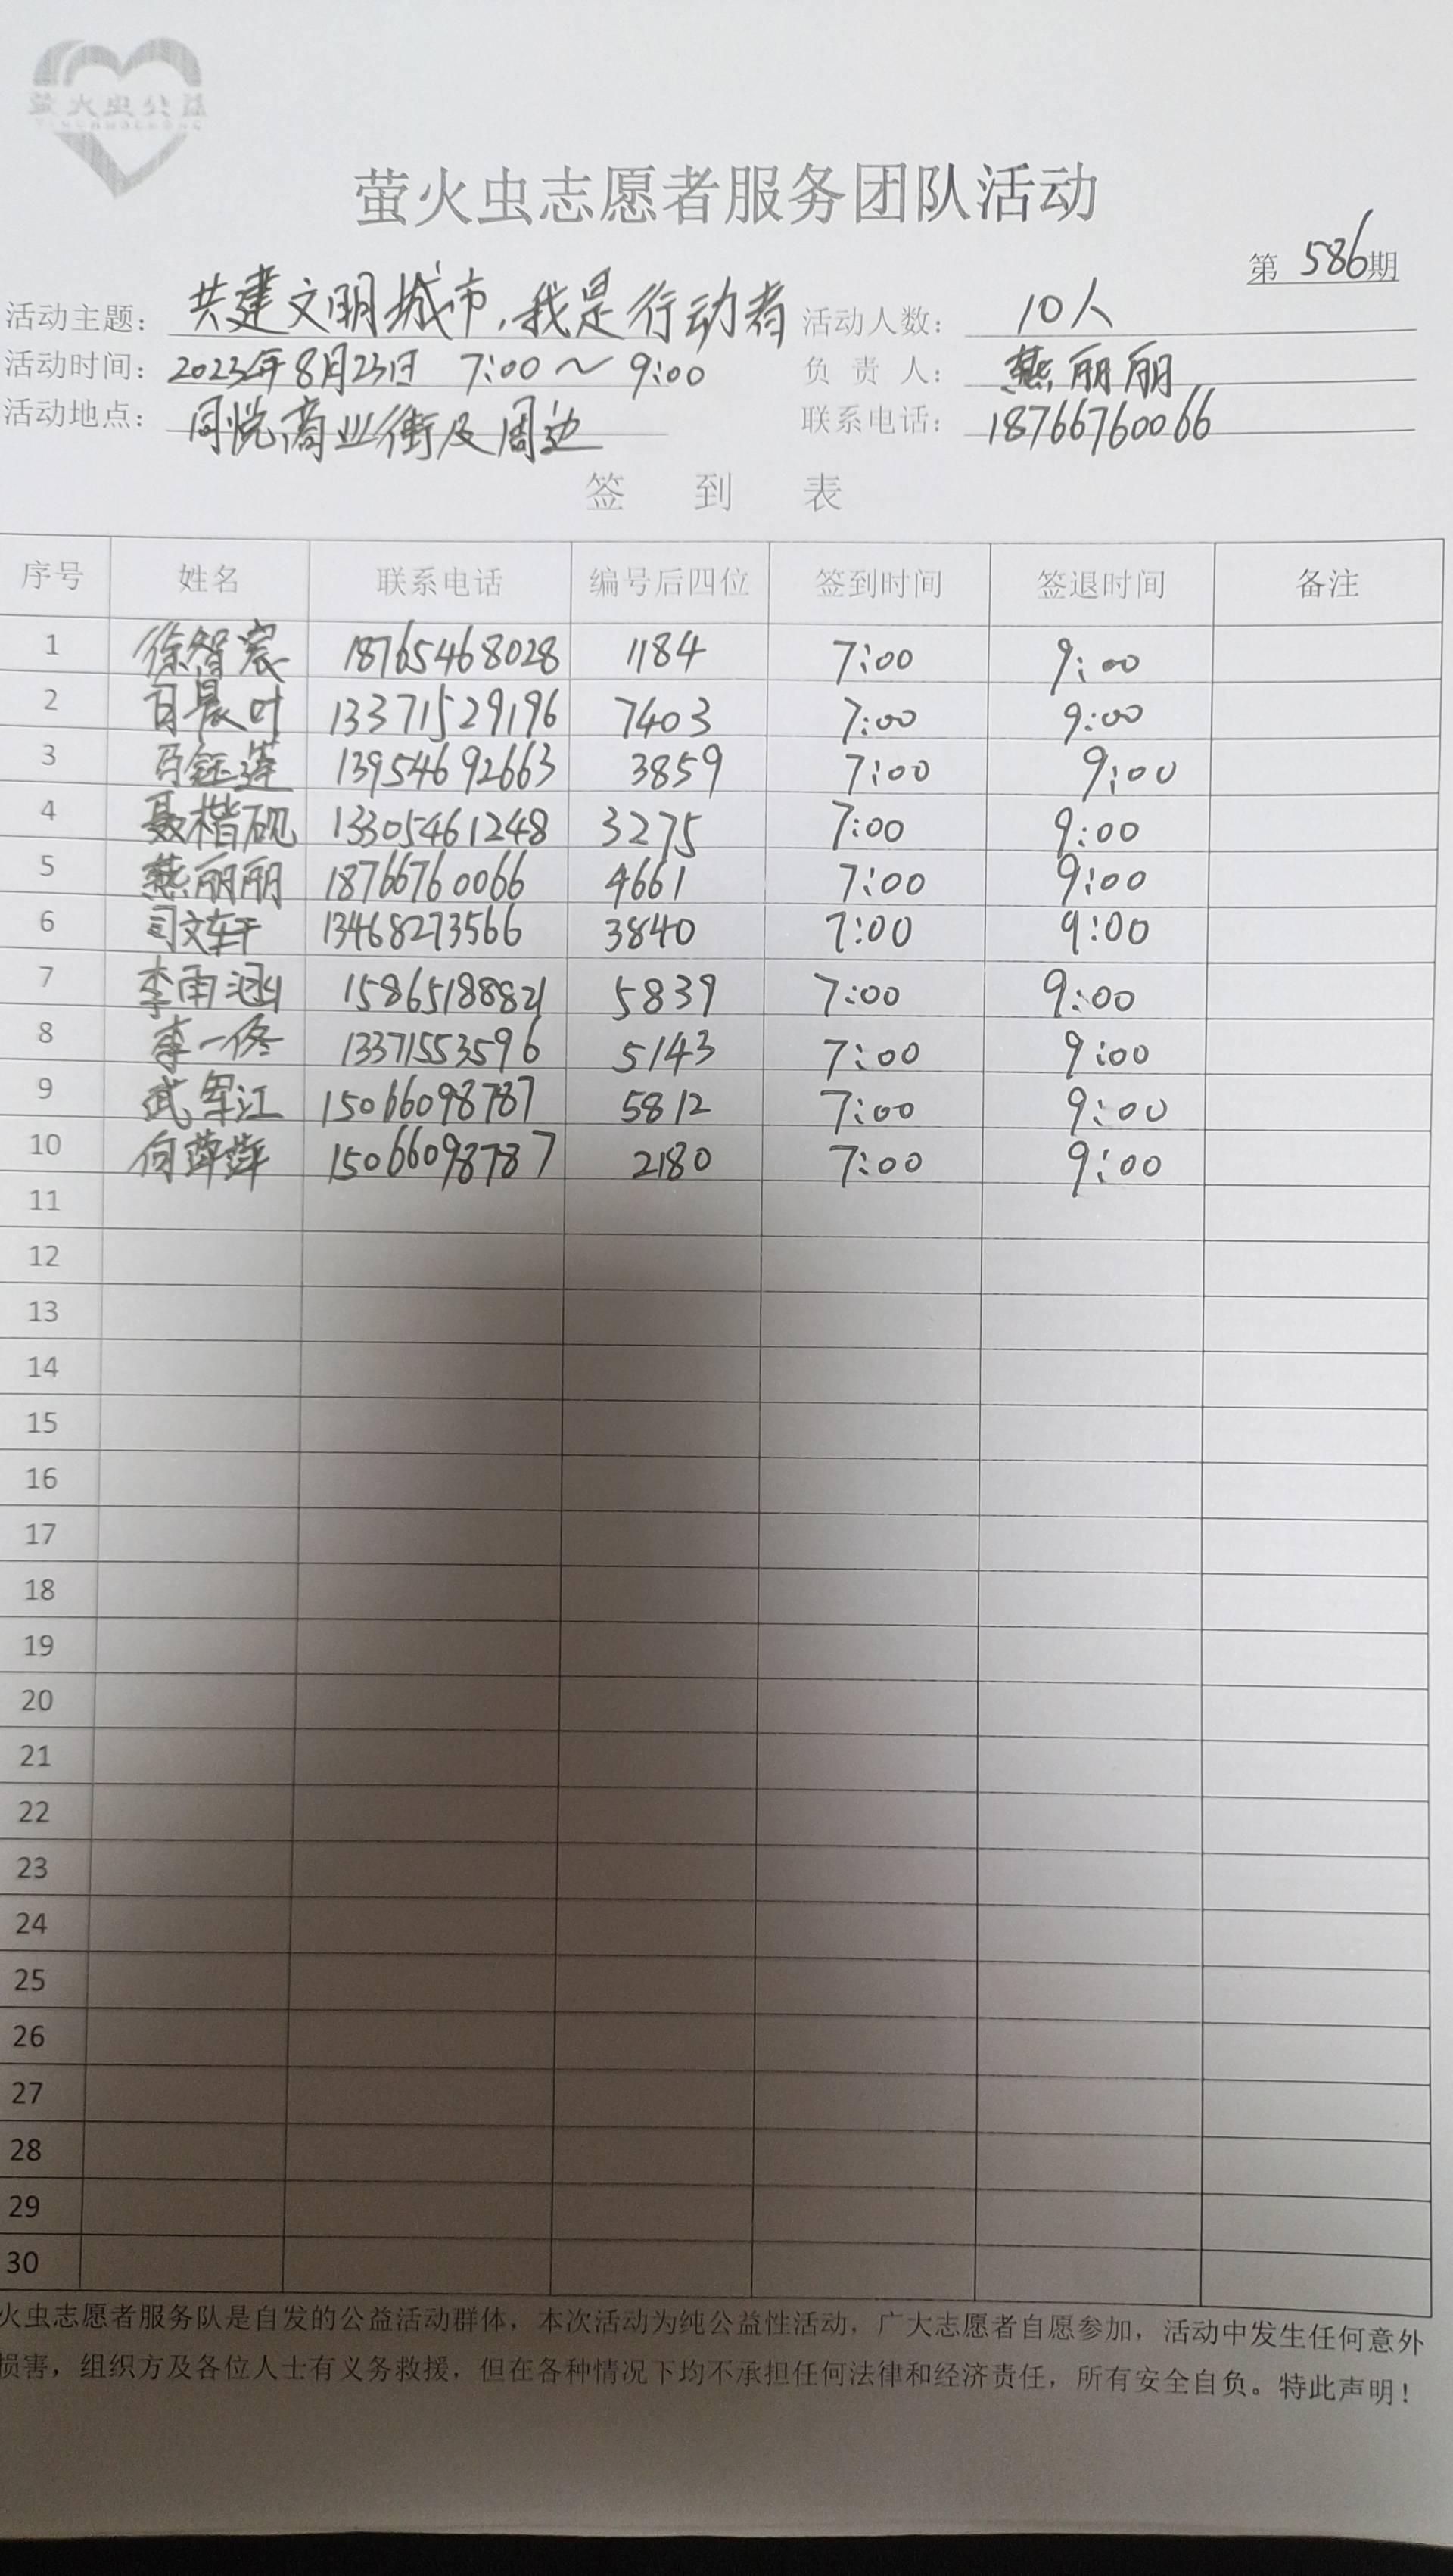 萤火虫公益
萤火虫志愿者服务团队活动
第 586 期
活动主题: 共建文明城市,我是行动者 活动人数: 10人
活动时间: 2023年8月23日 7:00～9:00 负责人: 燕丽丽
活动地点: 同悦商业街及周边 联系电话: 18766760066
签 到 表
序号 姓名 联系电话 编号后四位 签到时间 签退时间 备注
1 徐智宸 18765468028 1184 7:00 9:00
2 晨叶 13371529196 7403 7:00 9:00
3 马钰莲 13954692663 3859 7:00 9:00
4 聂楷砚 13305461248 3275 7:00 9:00
5 燕丽丽 18766760066 4661 7:00 9:00
6 司文轩 13468273566 3840 7:00 9:00
7 李雨涵 15865188821 5839 7:00 9:00
8 李一佟 13371553596 5143 7:00 9:00
9 武军江 15066098787 5812 7:00 9:00
10 向萍萍 15066098787 2180 7:00 9:00
11
12
13
14
15
16
17
18
19
20
21
22
23
24
25
26
27
28
29
30
火虫志愿者服务队是自发的公益活动群体，本次活动为纯公益性活动，广大志愿者自愿参加，活动中发生任何意外
损害，组织方及各位人士有义务救援，但在各种情况下均不承担任何法律和经济责任，所有安全自负。特此声明！